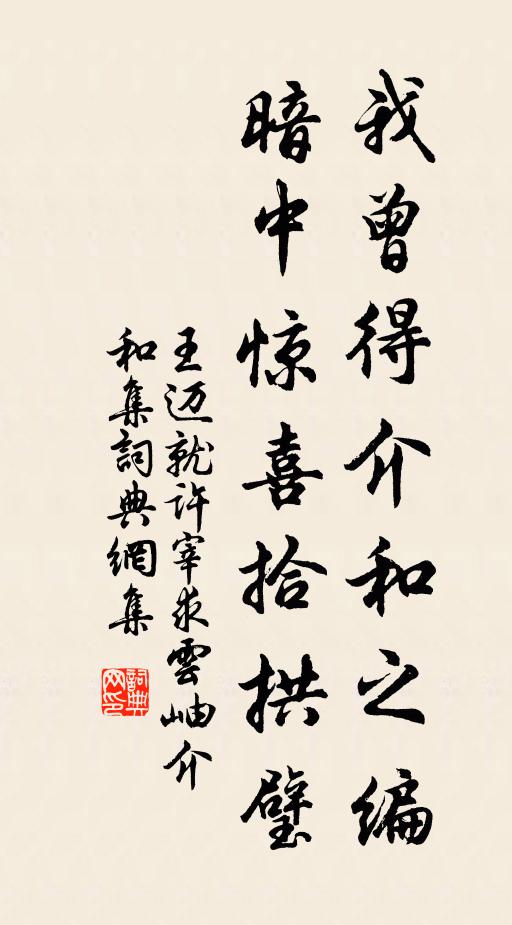 我曾得介和之编
暗中惊喜拾拱璧
王迈就许宰求雲岫介
和集詞典網集
詞典网印